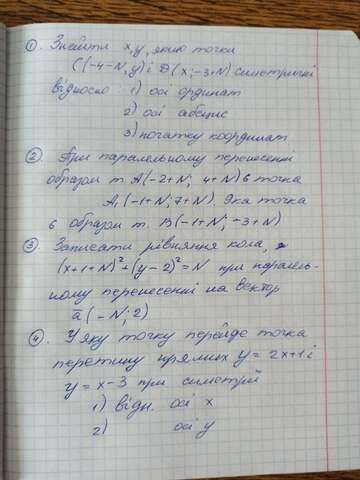 ① . Знайти x, y, якщо точки
C(-4-N, y) і D(x; -3+N) симетричні
відносно : 1) осі ординат
2) осі абсцис
3) початку координат
② . При паралельному перенесенні
образом т. A(-2+N; 4+N) є точка
A₁(-1+N; 7+N). Яка точка
є образом т. B(-1+N; -3+N)
③ . Записати рівняння кола,
(x+1+N)²+(y-2)²=N при паралель-
ному перенесенні на вектор
a̅(-N; 2)
④ . У яку точку перейде точка
перетину прямих y = 2x+1 і
y = x-3 при симетрії
1) відн. осі x
2) осі y